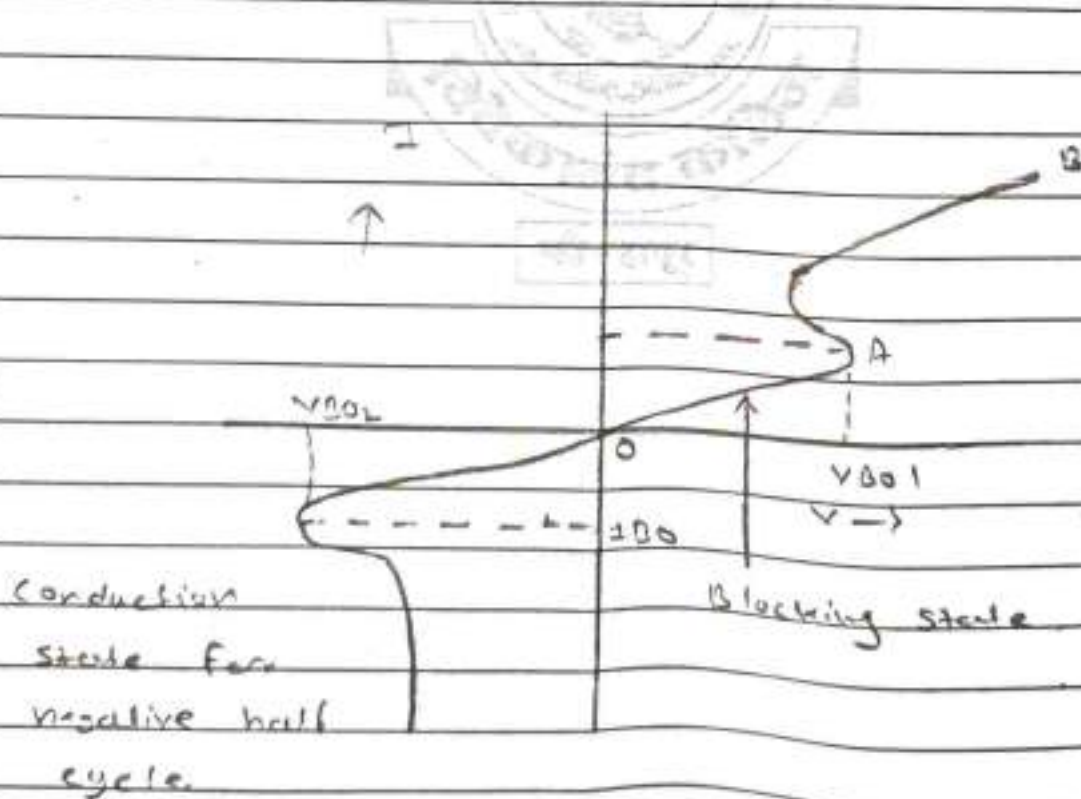 I
B
A
VBO2
O
VBO1
V →
IBO
Blocking state
Conduction
state for
negative half
cycle.